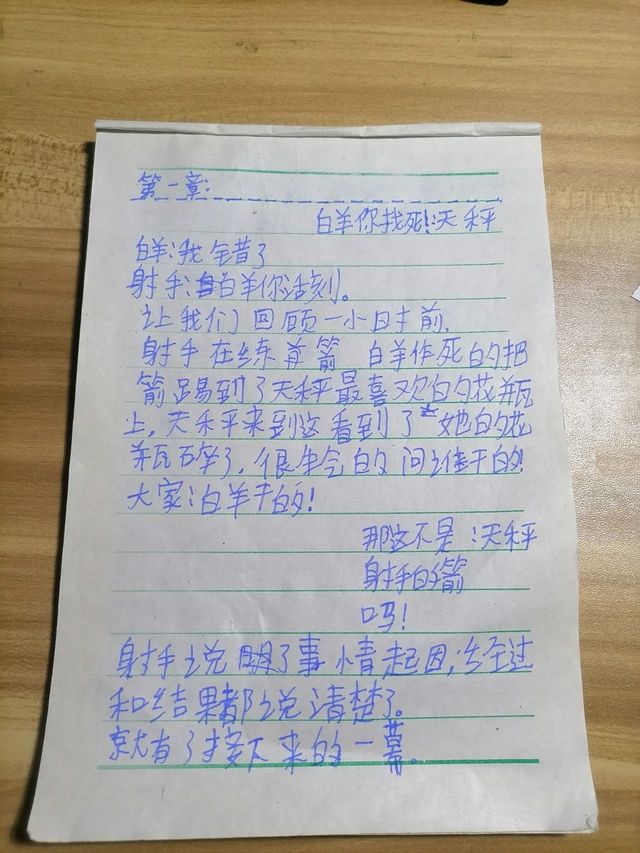 第一章:
白羊你找死!:天秤
白羊:我错了
射手:白羊你活刻。
让我们回顾一小时前.
射手在练育箭 白羊作死的把
箭踢到了天秤最喜欢的花瓶
上,天秤来到这看到了她的花
瓶碎了,很生令的问:谁干的!
大家:白羊干的!
那这不是:天秤
射手的箭
吗!
射手说明了事情起因,经过
和结果都说清楚了。
就有了接下来的一幕。